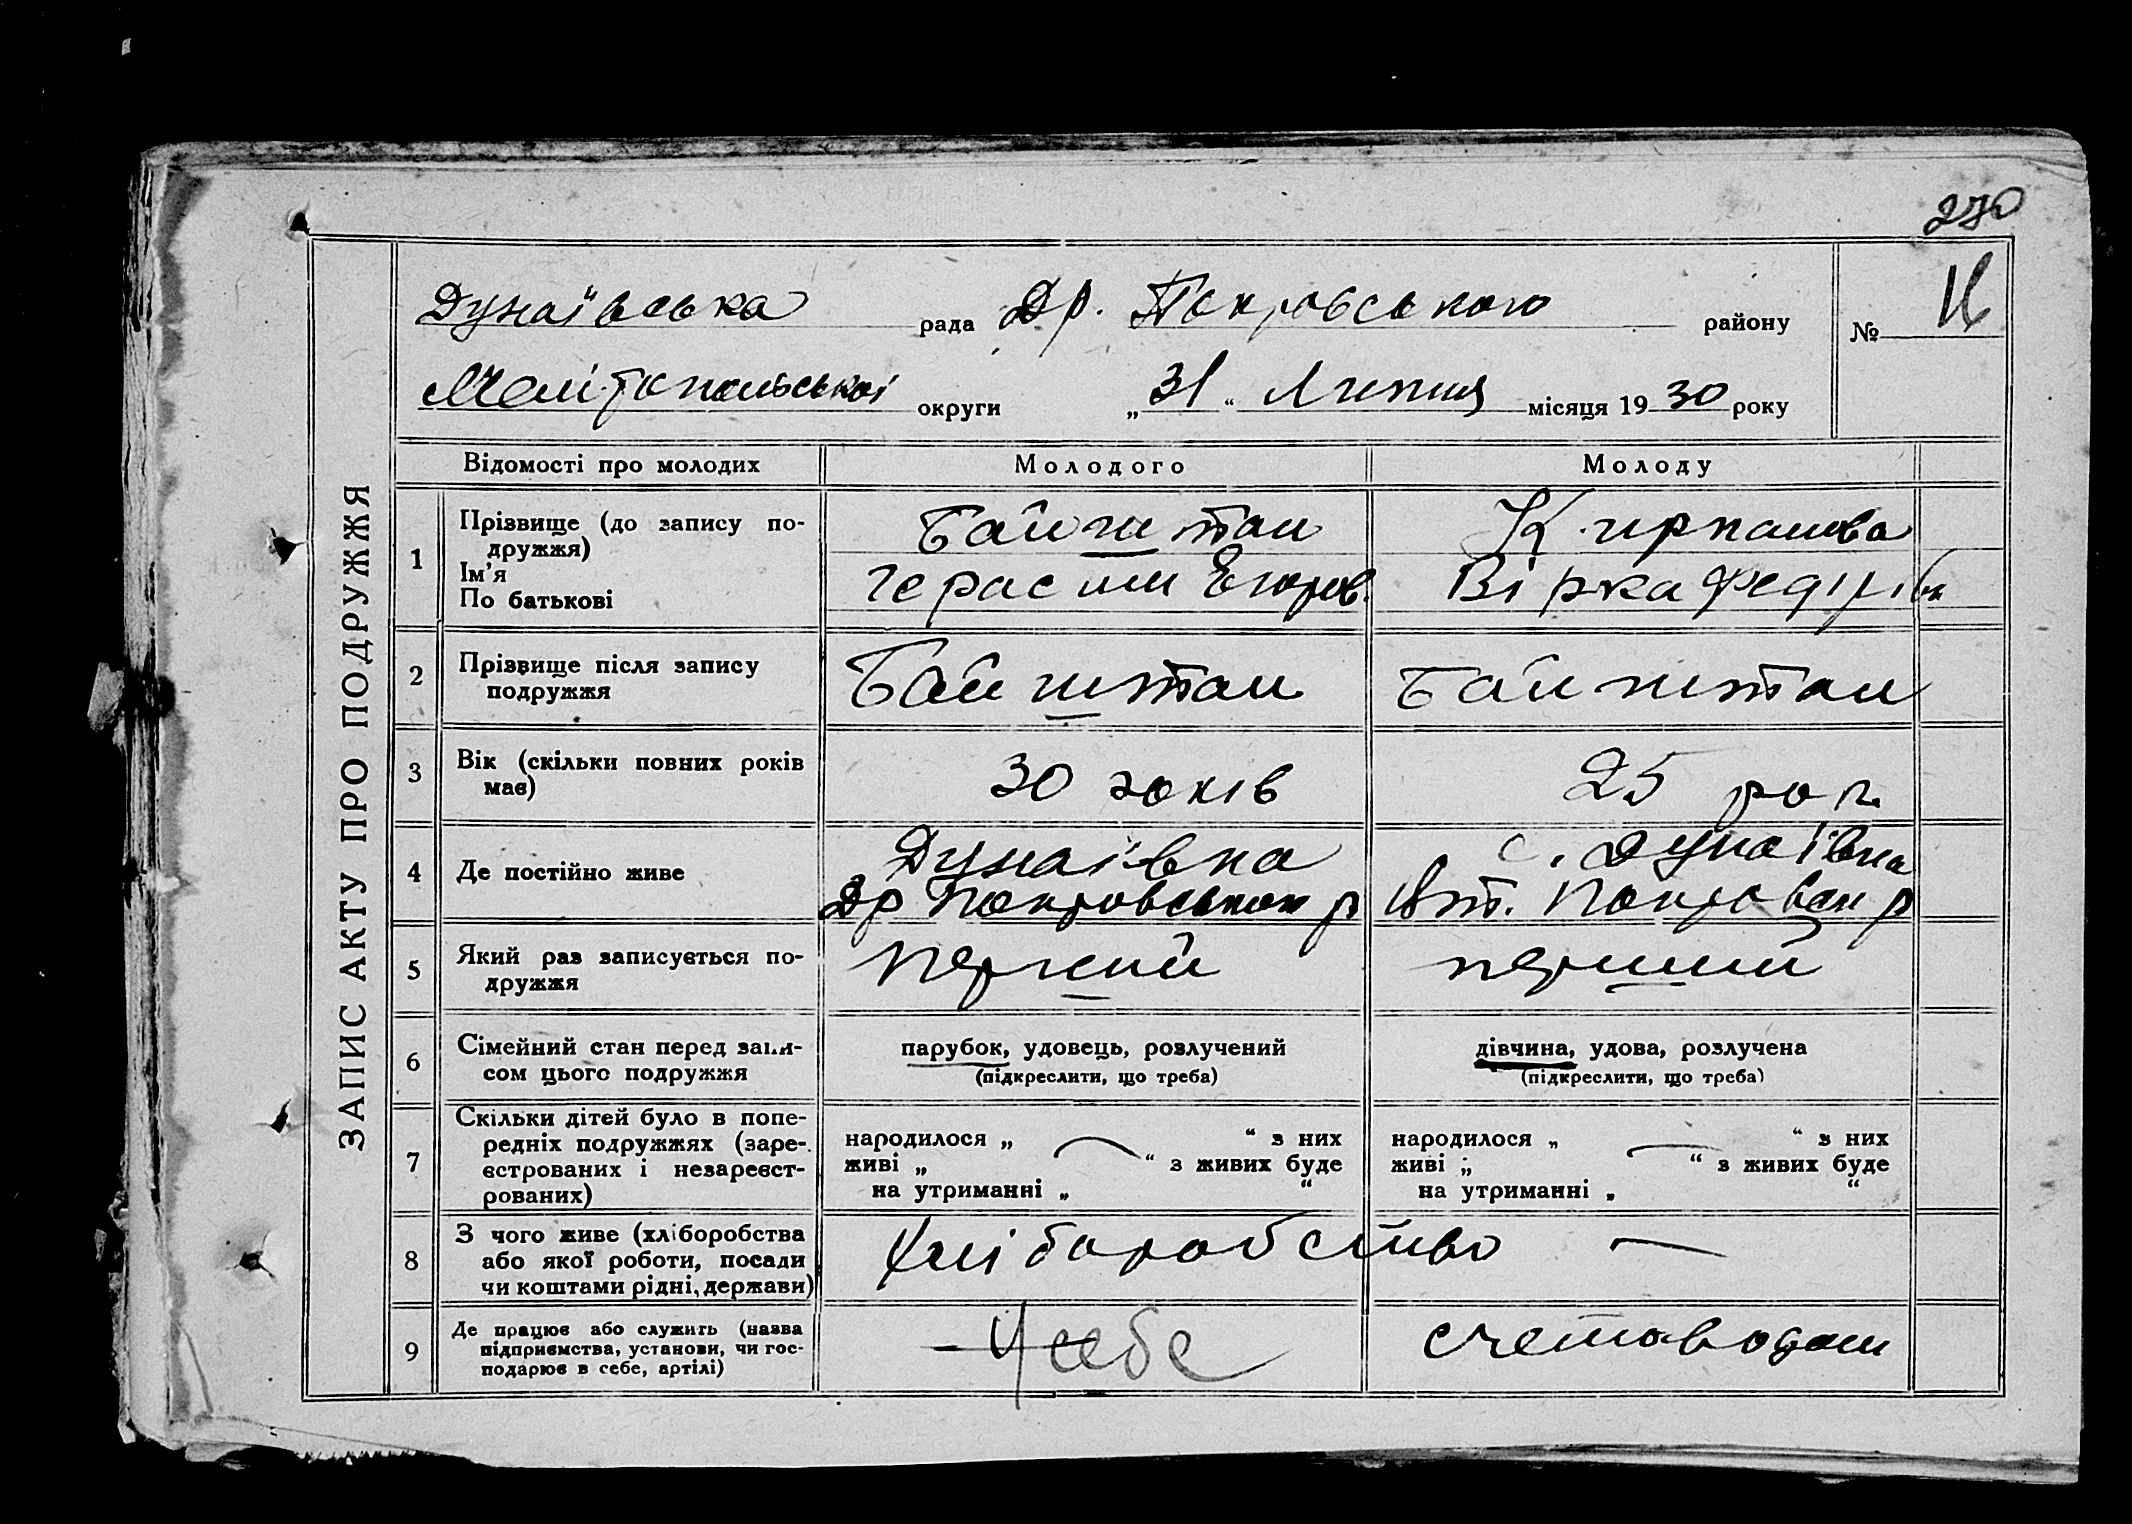 270
Дунаївська рада Др. Покровського району
№ 16
Мелітопольської округи „31“ Липня місяця 1930 року
ЗАПИС АКТУ ПРО ПОДРУЖЖЯ
Відомості про молодих Молодого Молоду
1 Прізвище (до запису подружжя)
Ім'я
По батькові
Байштан
Герасим Егоров.
Вірка Федірівн
2 Прізвище після запису
подружжя
Байштан Байштан
3 Вік (скільки повних років
має)
30 років 25 рок.
4 Де постійно живе
Дунаївка с. Дунаївка
Др Покровськом р Покровськ р
5 Який раз записується по-
дружжя
первий перший
6 Сімейний стан перед запи-
сом цього подружжя
парубок, удовець, розлучений
(підкреслити, що треба)
дівчина, удова, розлучена
(підкреслити, що треба)
7 Скільки дітей було в попе-
редніх подружжях (заре-
єстрованих і незареєст-
рованих)
народилося „ “ з них
живі „ “ з живих буде
на утриманні „ “
народилося „ “ з них
живі „ “ з живих буде
на утриманні „ “
8 З чого живе (хліборобства
або якої роботи, посади
чи коштами рідні, держави)
хліборобство —
9 Де працює або служить (назва
підприємства, установи, чи гос-
подарює в себе, артілі)
У себе счетоводом